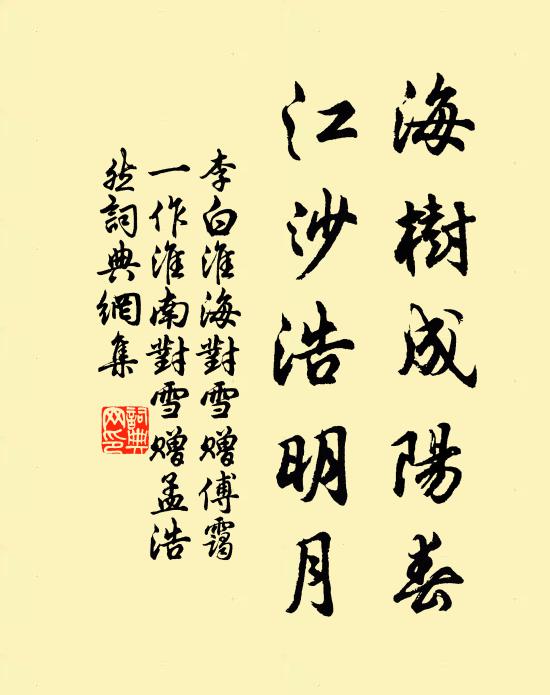 海樹成陽春
江沙浩明月
李白淮海對雪贈傅靄
一作淮南對雪贈孟浩
然詞典網集
詞典
网印